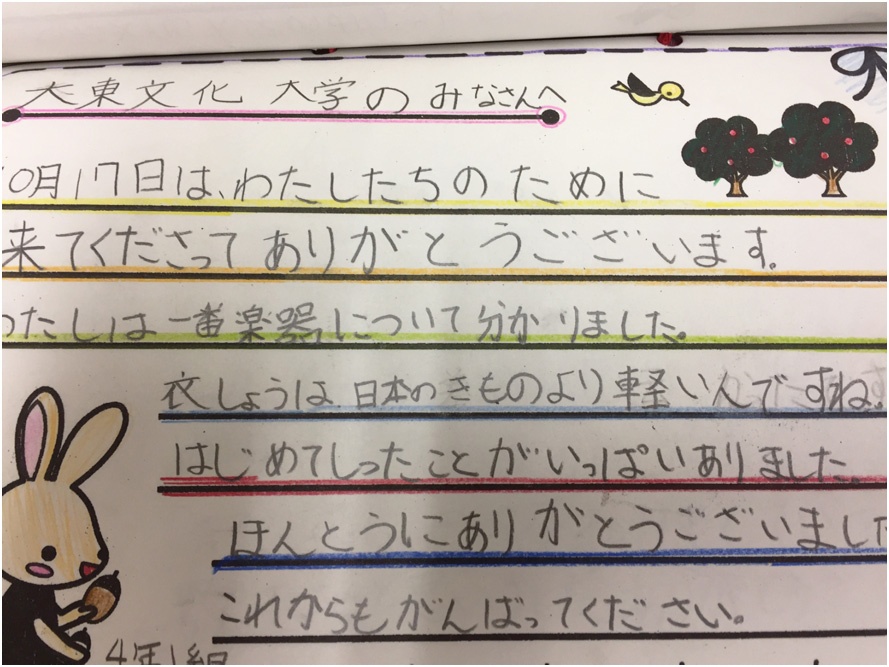 大東文化大学のみなさんへ
0月17日は、わたしたちのために
来てくださってありがとうございます。
わたしは一番楽器について分かりました。
衣しょうは日本のきものより軽いんですね。
はじめてしったことがいっぱいありました。
ほんとうにありがとうございました
これからもがんばってください。
4年1組